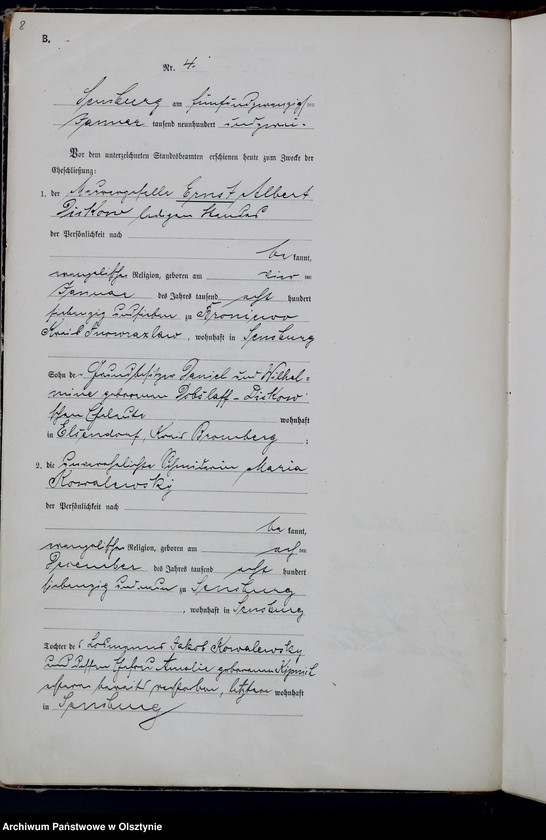 8
B.
Nr. 4.
Sensburg am fünfundzwanzigsten
Januar tausend neunhundert und zwei.
Vor dem unterzeichneten Standesbeamten erschienen heute zum Zwecke der
Eheschließung:
1. der Maurergeselle Ernst Albert
Diskow ledigen Standes
der Persönlichkeit nach
be kannt,
evangelischer Religion, geboren am vier ten
Januar des Jahres tausend acht hundert
siebenzig und sieben zu
Kreis Inowrazlaw, wohnhaft in Sensburg
Sohn des Grundbesitzer Daniel und Wilhel-
mine geborenen Dobslaff-Diskow'
schen Eheleute wohnhaft
in Elsendorf, Kreis Bromberg ;
2. die unverehelichte Maria
Kowalewsky
der Persönlichkeit nach
be kannt,
evangelischer Religion, geboren am ach ten
Dezember des Jahres tausend acht hundert
siebenzig und neun zu Sensburg
, wohnhaft in Sensburg
Tochter des Losmanns Jakob Kowalewsky
und dessen Ehefrau Amalie geborenen
ersterer bereits verstorben, letztere wohnhaft
in Sensburg
Archiwum Państwowe w Olsztynie